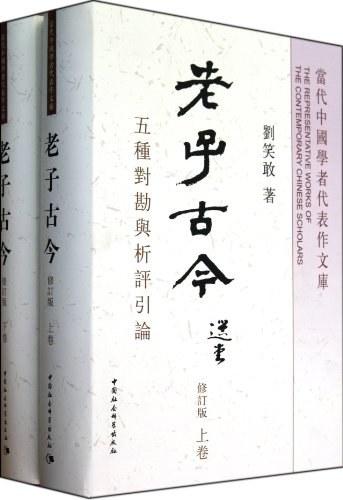 當代中國學者代表作文庫
THE REPRESENTATIVE WORKS OF
THE CONTEMPORARY CHINESE SCHOLARS
劉笑敢 著
老子古今
五種對勘與析評引論
選堂
修訂版 上卷
中国社会科学出版社
老子古今
修訂版 上卷
老子古今
修訂版 下卷